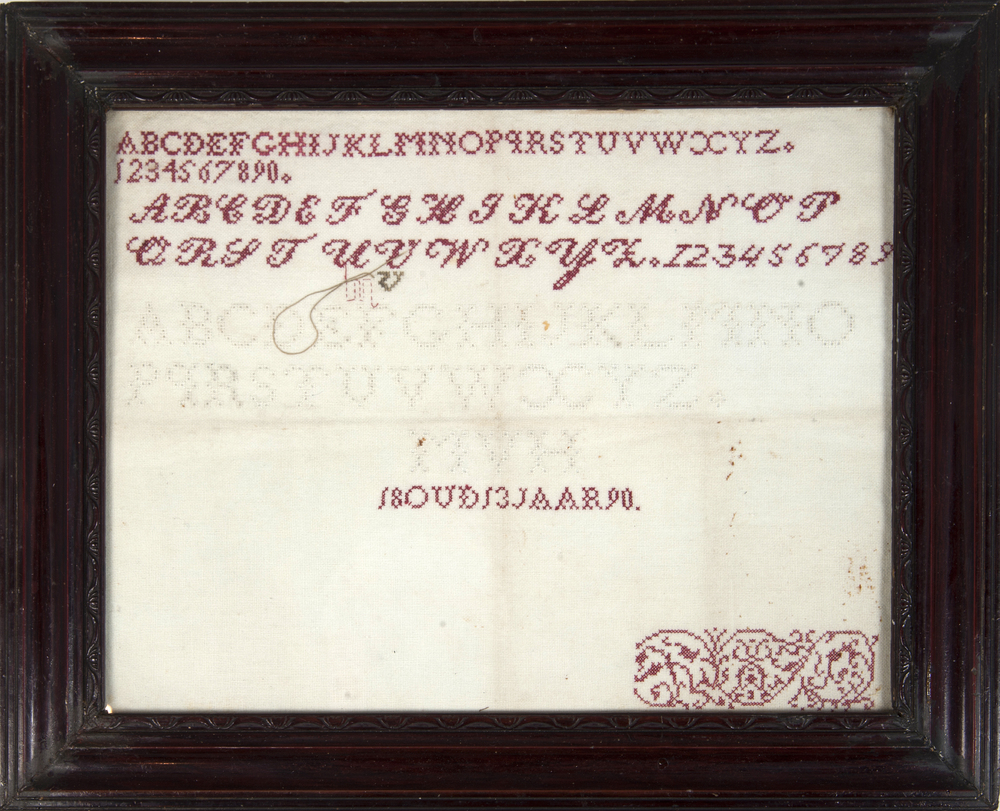 ABCDEFGHIJKLMNOPQRSTUVWXYZ.
1234567890.
ABCDEFGHIKLMNOP
QRSTUVWXYZ.123456789
V
ABCDEFGHIJKLMNO
PQRSTUVWXYZ.
18OUD13JAAR90.